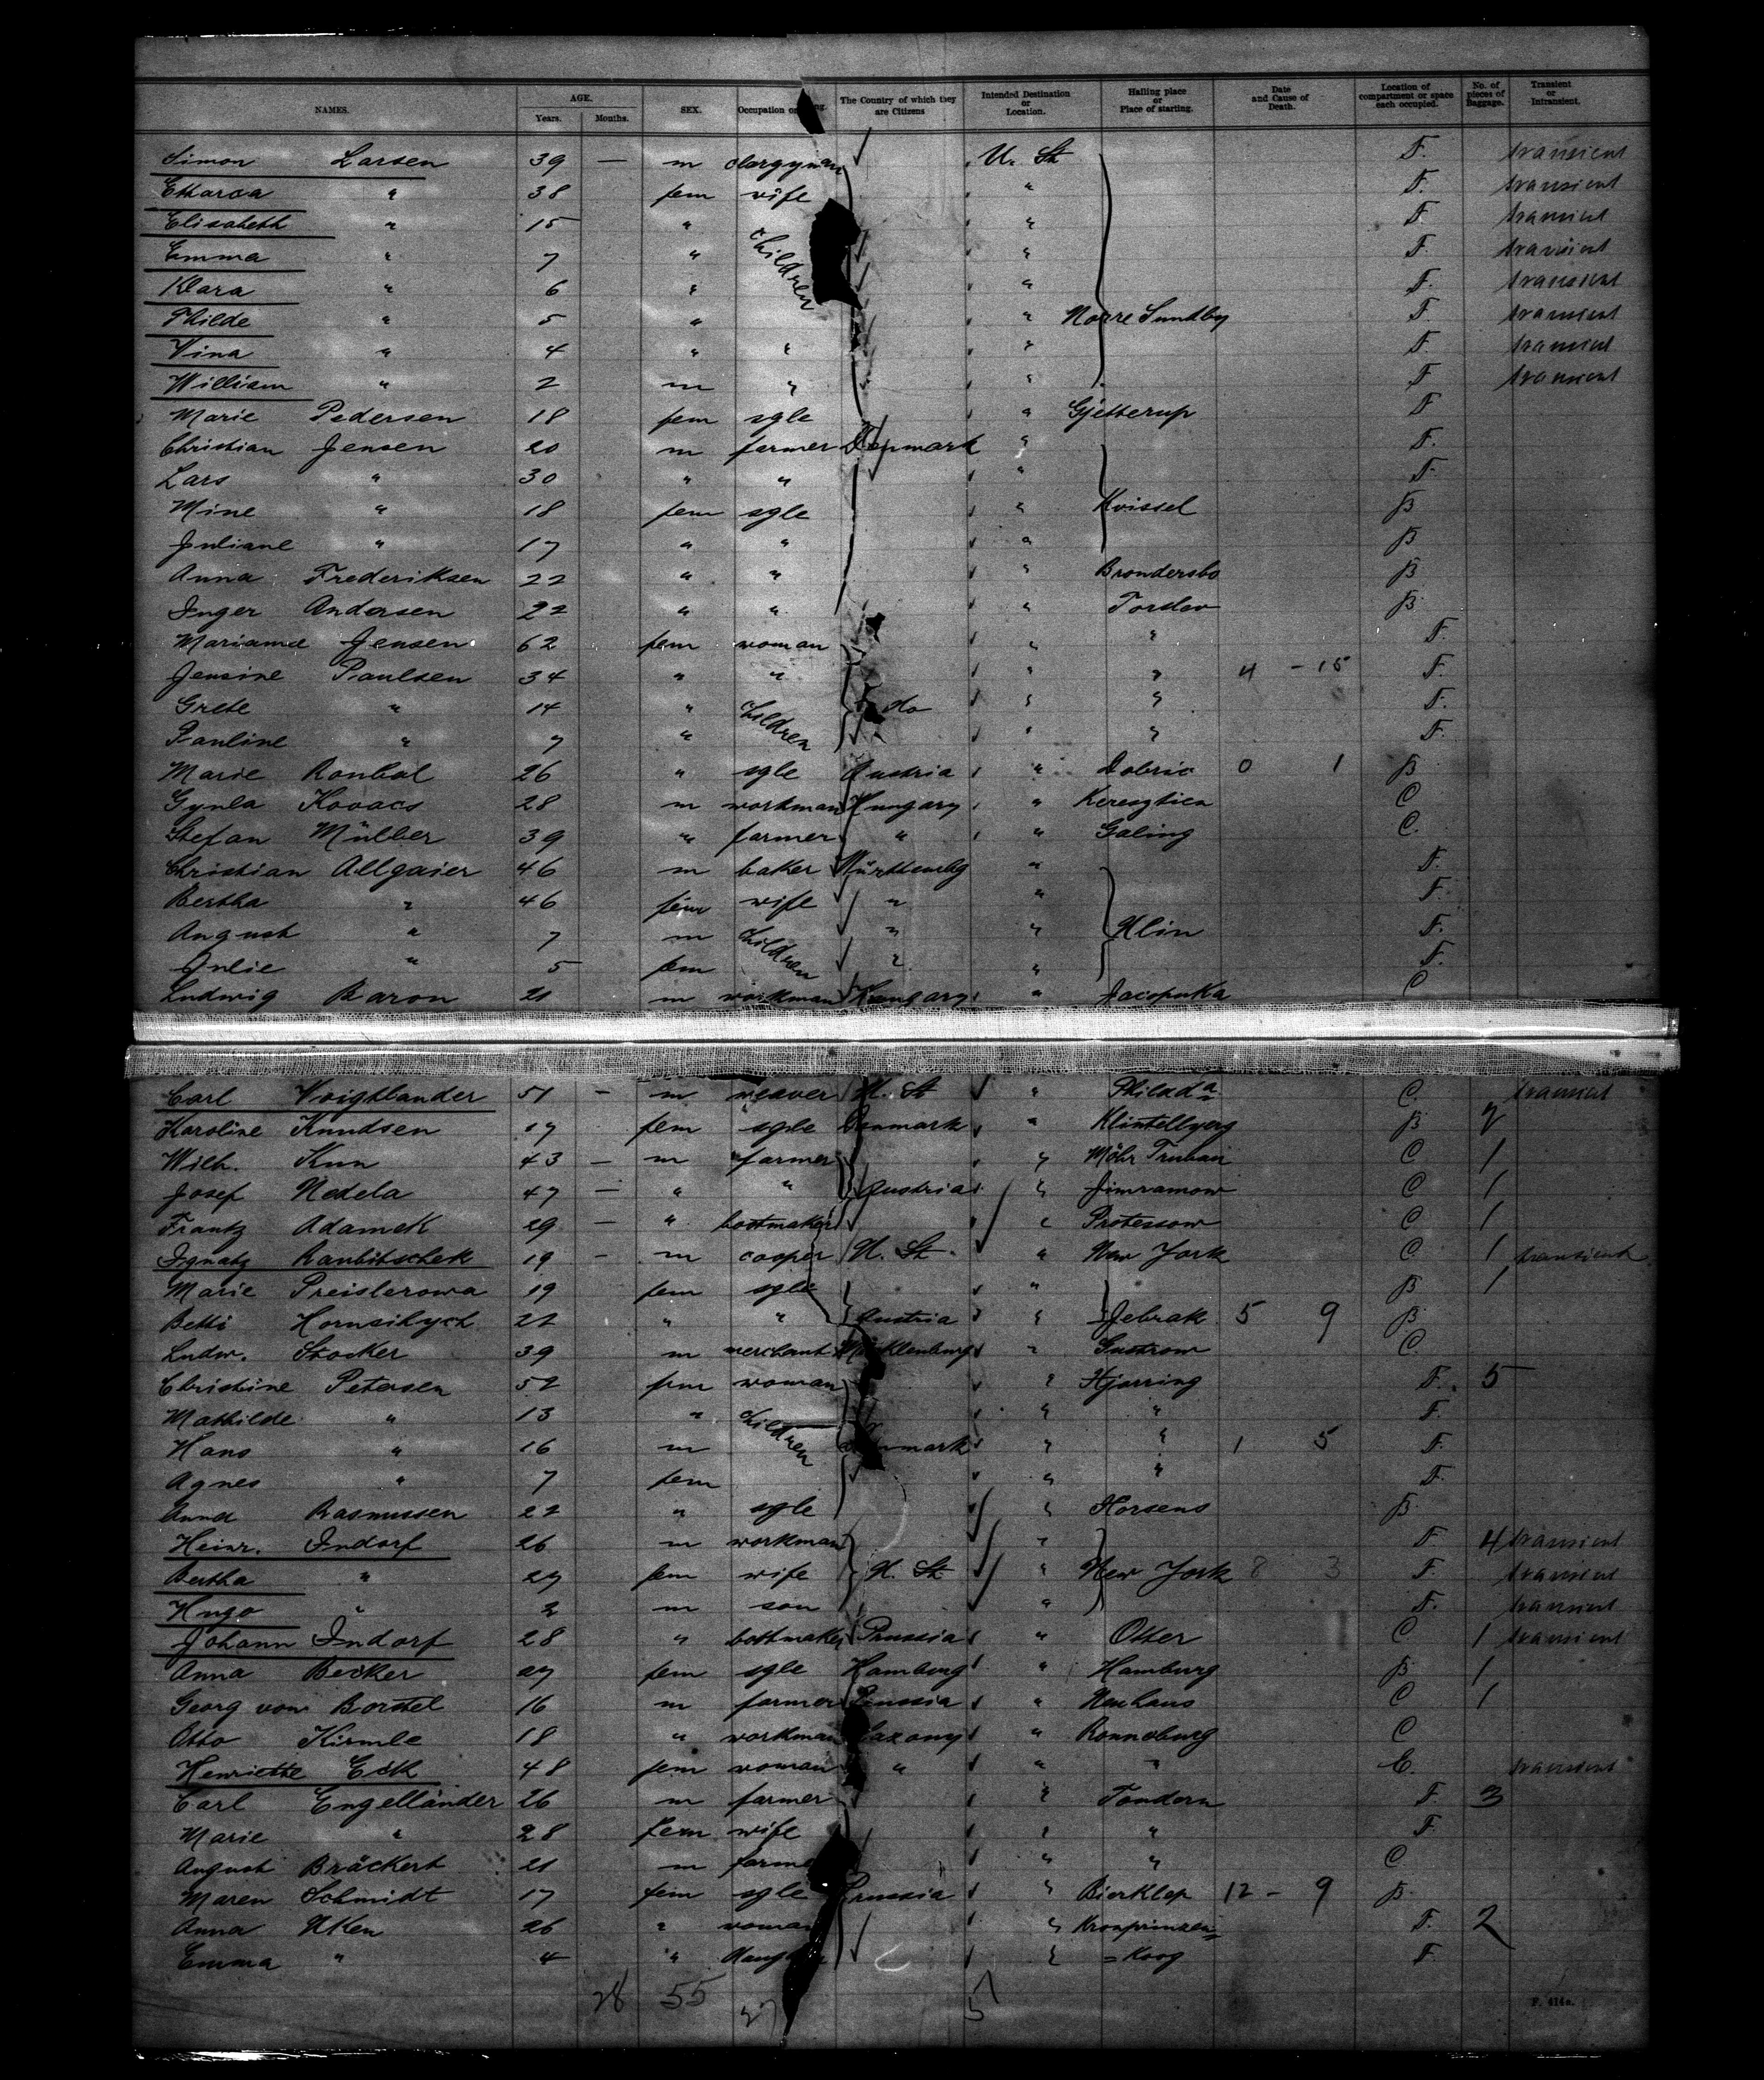 NAMES. AGE. Years. Months. SEX. Occupation or The Country of which they are Citizens Intended Destination or Location. Hailing place or Place of starting. Date and Cause of Death. Location of compartment or space each occupied. No. of pieces of Baggage. Transient or Intransient.
Simon Larsen 39 — m clergyman U. St F. transient
38 fem wife " F. transient
Elisabeth " 15 " children " F transient
Emma " 7 " " F. transient
Klara " 6 " " F. transient
Thilde " 5 " " Norre Sundby F. transient
Vina " 4 " " " F. transient
William " 2 m " " F transient
Marie Pedersen 18 fem sgle " Gjetterup F
Christian Jensen 20 m farmer Denmark " F.
Lars " 30 " " " F.
Mine " 18 fem sgle " Kvissel B
Juliane " 17 " " " B
Anna Frederiksen 22 " " " Brondersbo B
Inger Andersen 22 " " " Torslev B
Mariane Jensen 62 fem woman " " F.
Jensine Paulsen 34 " " " " 4 - 15 F.
Grete " 14 " children do " " F.
Pauline " 7 " " " F.
Marie Roubal 26 " sgle Austria " Dobric 0 1 B
Gyula Kovacs 28 m workman Hungary " C
Stefan Müller 39 " farmer " " Galing C.
Christian Allgaier 46 m baker Württembg " F.
Bertha " 46 fem wife " " F.
August " 7 m children " " Ulm F.
Julie " 5 fem " " F.
Ludwig Baron 21 m workman Hungary " C
Carl Voigtlander 51 - m weaver U. St " Philada C. transient
Karoline Knudsen 17 fem sgle Denmark " Klintebjerg B 2
Wilh. Kun 43 — m farmer " Mähr Trubau C 1
Josef Nedela 47 — " " Austria " Jimramow C 1
Frantz Adamek 29 — " bootmaker " C 1
Ignatz Raubitschek 19 — m cooper U. St. " New York C 1 transient
Marie Preislerowa 19 fem sgle " B 1
Betti 22 " " Austria " Jebrak 5 9 B
Ludw. Stocker 39 m merchant Mecklenburg " Gustrow C
Christine Petersen 52 fem woman " Hjorring F. 5
Mathilde " 13 " children " " F.
Hans " 16 m Denmark " " 1 5 F.
Agnes " 7 fem " " F.
Anna Rasmussen 22 " sgle " Horsens B
Heinr. Indorf 26 m workman " F 4 transient
Bertha " 27 fem wife U. St " New York 8 3 F. transient
Hugo " 2 m son " F. transient
Johann Indorf 28 " bootmaker Prussia " Otter C 1 transient
Anna Becker 27 fem sgle Hamburg " Hamburg B 1
Georg von Borstel 16 m farmer Prussia " Neuhaus C 1
Otto Kirmle 18 " workman Saxony " Ronneburg C
Henriette Eck 48 fem woman " " " C. transient
Carl Engelländer 26 m farmer " Tondern F. 3
Marie " 28 fem wife " " F.
August Bräckert 21 m farmer " " C
Maren Schmidt 17 fem sgle Prussia " Bierklep 12 - 9 B.
Anna Uken 26 " woman " Kronprinzen= F. 2
Emma " 4 " daughter " =Koog F.
28 55 27 5
F. 414a.